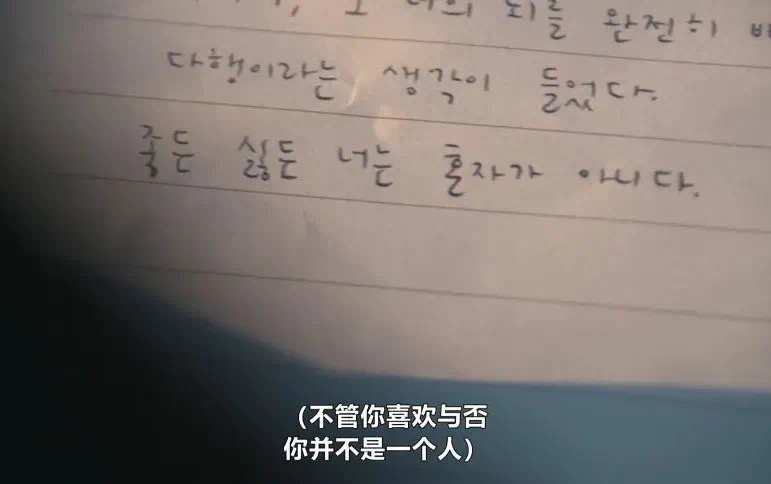 너의 뇌를 완전히
다행이라는 생각이 들었다.
좋든 싫든 너는 혼자가 아니다.
（不管你喜欢与否
你并不是一个人）